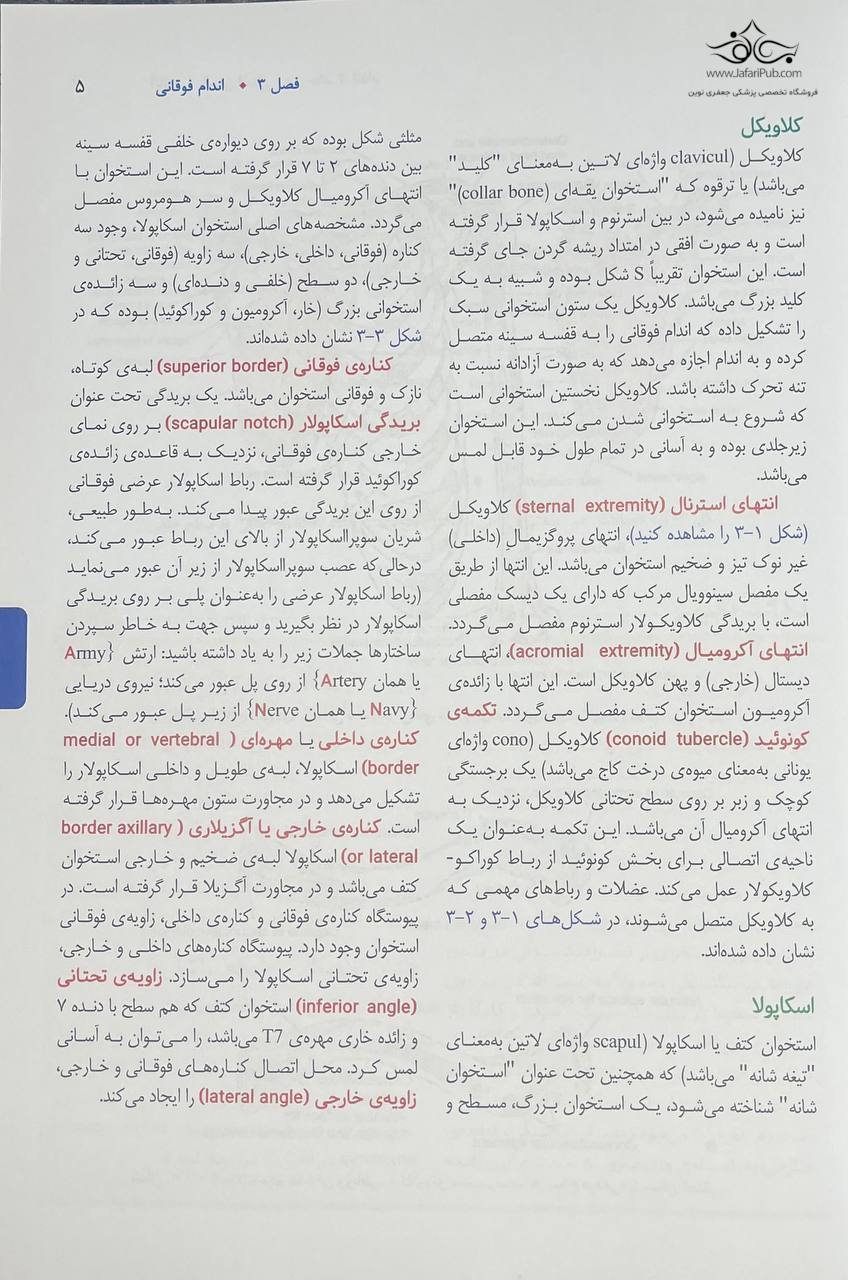 www.JafariPub.com
فروشگاه تخصصی پزشکی جعفری نوین
فصل ۳ • اندام فوقانی
۵
کلاویکل
کلاویکل (clavicul واژه‌ای لاتین به‌معنای "کلید"
می‌باشد) یا ترقوه که "استخوان یقه‌ای (collar bone)"
نیز نامیده می‌شود، در بین استرنوم و اسکاپولا قرار گرفته
است و به صورت افقی در امتداد ریشه گردن جای گرفته
است. این استخوان تقریباً S شکل بوده و شبیه به یک
کلید بزرگ می‌باشد. کلاویکل یک ستون استخوانی سبک
را تشکیل داده که اندام فوقانی را به قفسه سینه متصل
کرده و به اندام اجازه می‌دهد که به صورت آزادانه نسبت به
تنه تحرک داشته باشد. کلاویکل نخستین استخوانی است
که شروع به استخوانی شدن می‌کند. این استخوان
زیرجلدی بوده و به آسانی در تمام طول خود قابل لمس
می‌باشد.
انتهای استرنال (sternal extremity) کلاویکل
(شکل ۱-۳ را مشاهده کنید)، انتهای پروگزیمال (داخلی)
غیر نوک تیز و ضخیم استخوان می‌باشد. این انتها از طریق
یک مفصل سینوویال مرکب که دارای یک دیسک مفصلی
است، با بریدگی کلاویکولار استرنوم مفصل می‌گردد.
انتهای آکرومیال (acromial extremity)، انتهای
دیستال (خارجی) و پهن کلاویکل است. این انتها با زائده‌ی
آکرومیون استخوان کتف مفصل می‌گردد. تکمه‌ی
کونوئید (conoid tubercle) کلاویکل (cono واژه‌ای
یونانی به‌معنای میوه‌ی درخت کاج می‌باشد) یک برجستگی
کوچک و زبر بر روی سطح تحتانی کلاویکل، نزدیک به
انتهای آکرومیال آن می‌باشد. این تکمه به‌عنوان یک
ناحیه‌ی اتصالی برای بخش کونوئید از رباط کوراکو-
کلاویکولار عمل می‌کند. عضلات و رباط‌های مهمی که
به کلاویکل متصل می‌شوند، در شکل‌های ۱-۳ و ۲-۳
نشان داده شده‌اند.
اسکاپولا
استخوان کتف یا اسکاپولا (scapul واژه‌ای لاتین به‌معنای
"تیغه شانه" می‌باشد) که همچنین تحت عنوان "استخوان
شانه" شناخته می‌شود، یک استخوان بزرگ، مسطح و
مثلثی شکل بوده که بر روی دیواره‌ی خلفی قفسه سینه
بین دنده‌های ۲ تا ۷ قرار گرفته است. این استخوان با
انتهای آکرومیال کلاویکل و سر هومروس مفصل
می‌گردد. مشخصه‌های اصلی استخوان اسکاپولا، وجود سه
کناره (فوقانی، داخلی، خارجی)، سه زاویه (فوقانی، تحتانی و
خارجی)، دو سطح (خلفی و دنده‌ای) و سه زائده‌ی
استخوانی بزرگ (خار، آکرومیون و کوراکوئید) بوده که در
شکل ۳-۳ نشان داده شده‌اند.
کناره‌ی فوقانی (superior border) لبه‌ی کوتاه،
نازک و فوقانی استخوان می‌باشد. یک بریدگی تحت عنوان
بریدگی اسکاپولار (scapular notch) بر روی نمای
خارجی کناره‌ی فوقانی، نزدیک به قاعده‌ی زائده‌ی
کوراکوئید قرار گرفته است. رباط اسکاپولار عرضی فوقانی
از روی این بریدگی عبور پیدا می‌کند. به‌طور طبیعی،
شریان سوپرااسکاپولار از بالای این رباط عبور می‌کند،
درحالی‌که عصب سوپرااسکاپولار از زیر آن عبور می‌نماید
(رباط اسکاپولار عرضی را به‌عنوان پلی بر روی بریدگی
اسکاپولار در نظر بگیرید و سپس جهت به خاطر سپردن
ساختارها جملات زیر را به یاد داشته باشید: ارتش {Army
یا همان Artery} از روی پل عبور می‌کند؛ نیروی دریایی
{Navy یا همان Nerve} از زیر پل عبور می‌کند).
کناره‌ی داخلی یا مهره‌ای (medial or vertebral
border) اسکاپولا، لبه‌ی طویل و داخلی اسکاپولار را
تشکیل می‌دهد و در مجاورت ستون مهره‌ها قرار گرفته
است. کناره‌ی خارجی یا آگزیلاری (border axillary
or lateral) اسکاپولا لبه‌ی ضخیم و خارجی استخوان
کتف می‌باشد و در مجاورت آگزیلا قرار گرفته است. در
پیوستگاه کناره‌ی فوقانی و کناره‌ی داخلی، زاویه‌ی فوقانی
استخوان وجود دارد. پیوستگاه کناره‌های داخلی و خارجی،
زاویه‌ی تحتانی اسکاپولا را می‌سازد. زاویه‌ی تحتانی
(inferior angle) استخوان کتف که هم سطح با دنده ۷
و زائده خاری مهره‌ی T7 می‌باشد، را می‌توان به آسانی
لمس کرد. محل اتصال کناره‌های فوقانی و خارجی،
زاویه‌ی خارجی (lateral angle) را ایجاد می‌کند.